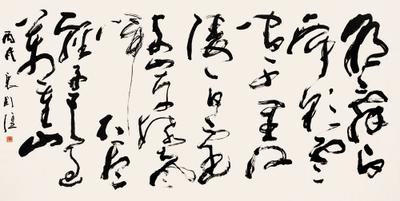 朝辞白
帝彩云
间千里江
陵一日還
两岸猿声
啼不
輕舟已過
萬重山
丙戌